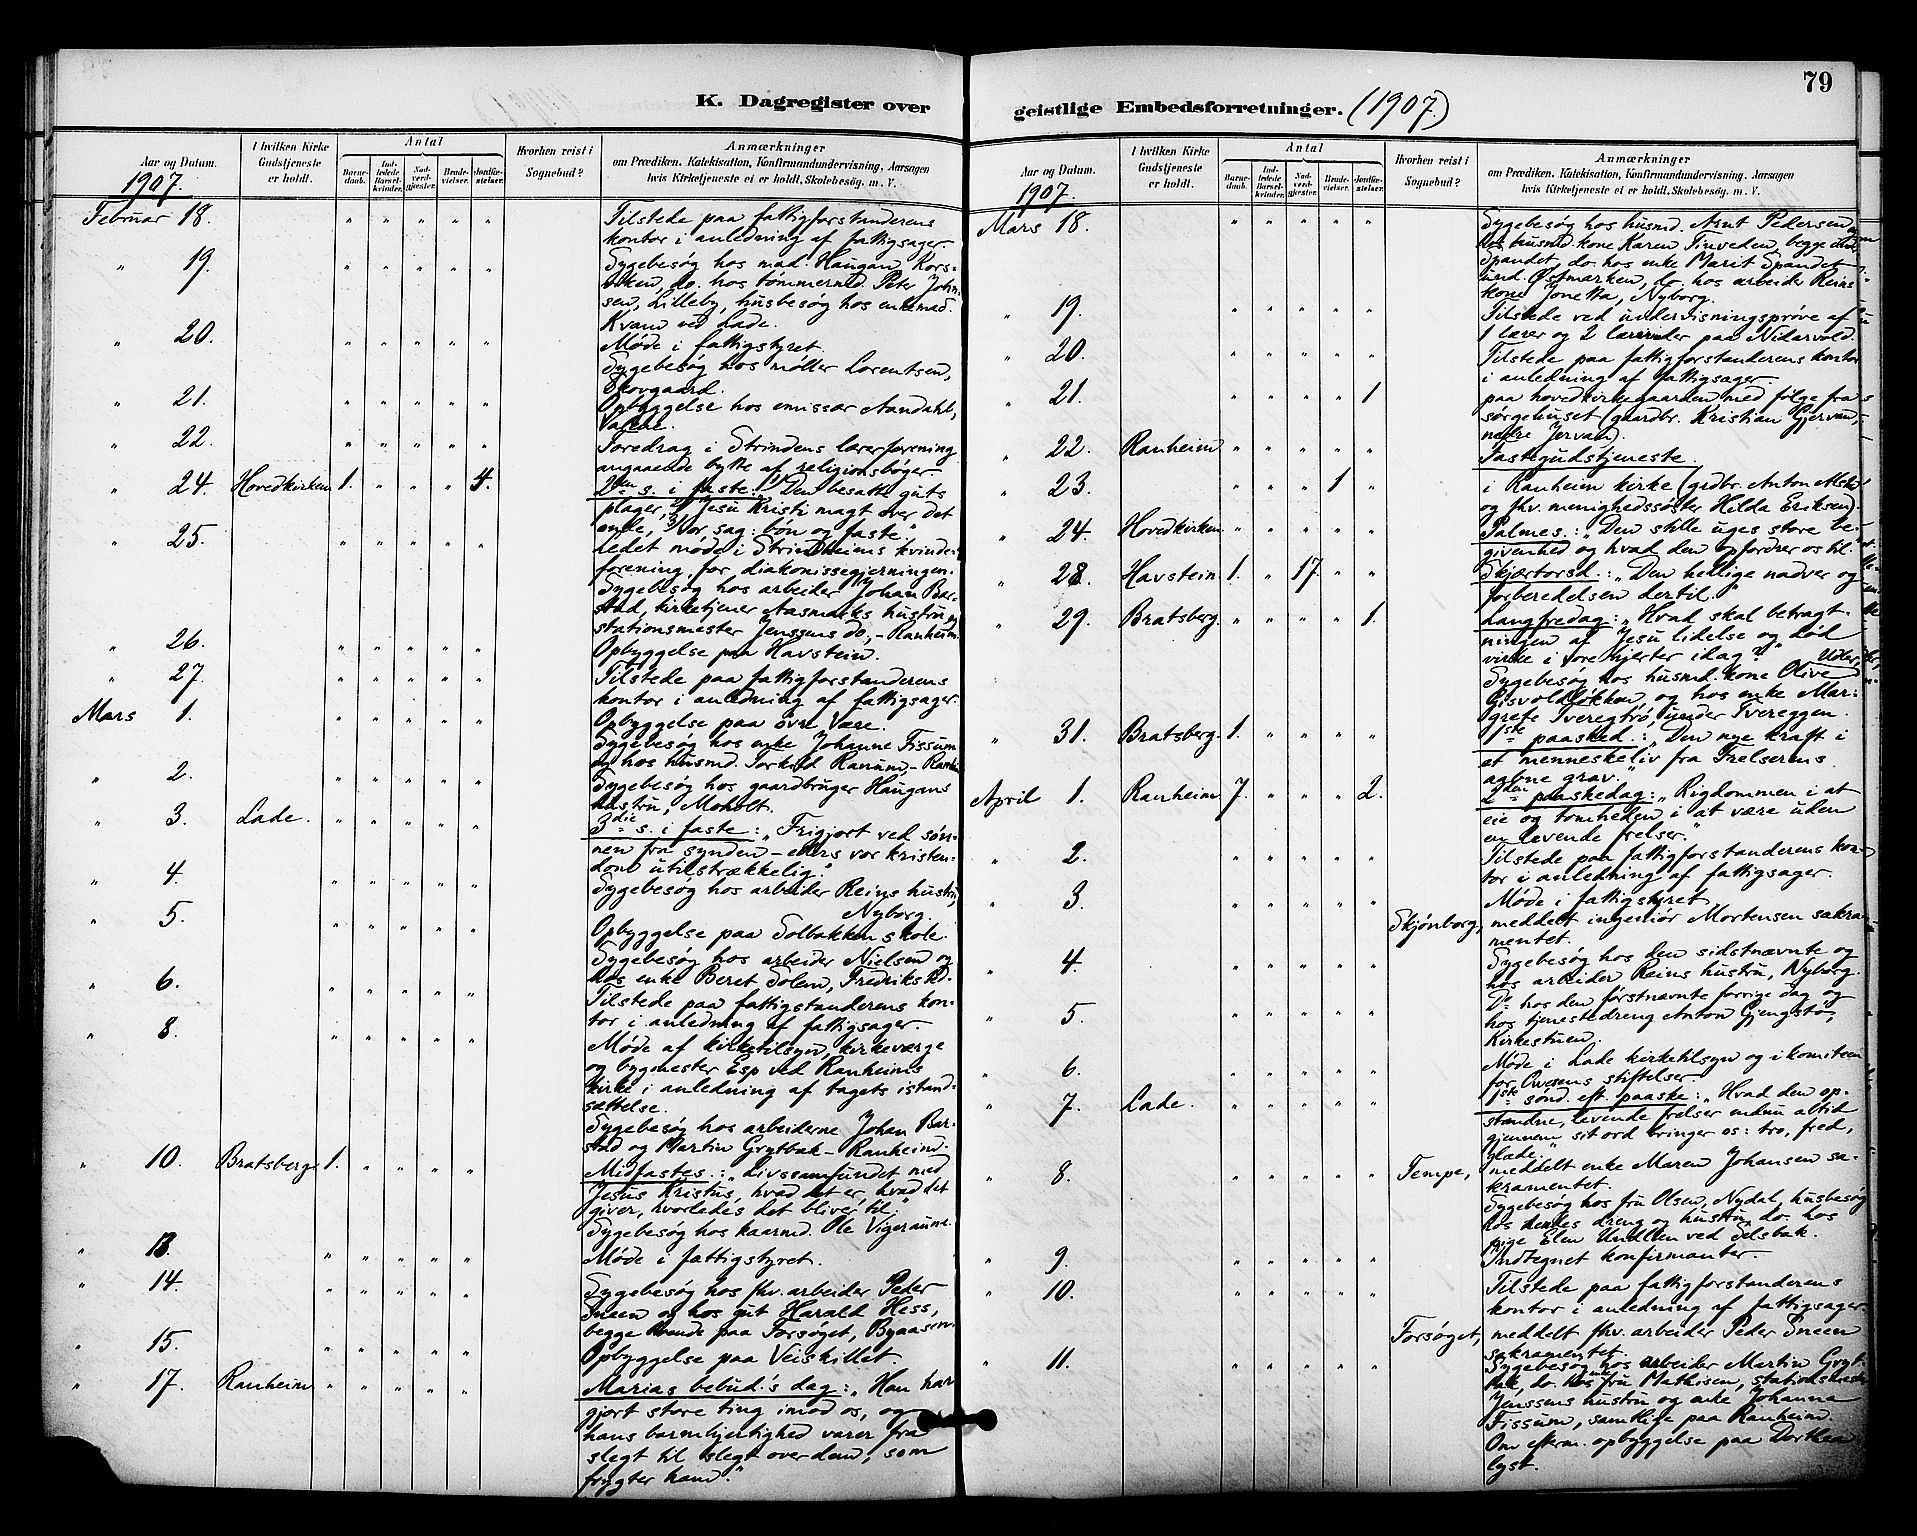 79
K. Dagregister over geistlige Embedsforretninger. (1907.)
Aar og Datum.
I hvilken Kirke Gudstjeneste er holdt.
Antal
Barnedaab.
Indledede Barselkvinder.
Nadverdgjester.
Brudevielser.
Jordfæstelser.
Hvorhen reist i Sognebud?
Anmærkninger
om Prædiken, Katekisation, Konfirmandundervisning, Aarsagen
hvis Kirketjeneste ei er holdt, Skolebesøg. m. V.
1907.
Februar 18. " " " " " Tilstede paa fattigforstanderens
kontor i anledning af fattigsager.
" 19. " " " " " Sygebesøg hos mad. Haugan, Kors-
viken, do. hos tømmermd. Peter John-
sen, Lilleby, husbesøg hos enkemad.
Kvam ved Lade.
" 20. " " " " " Møde i fattigstyret.
Sygebesøg hos møller Lorentsen,
Skovgaard.
" 21. " " " " " Opbyggelse hos emissær Aandahl,
" 22. " " " " " Foredrag i Strindens lærerforening
angaaende bytte af religionsbøger.
" 24. Hovedkirken 1. " " " 4. 2den s. i faste: "Den besatte guts
plager, Jesu Kristi magt over det
onde, Vor sag: bøn og faste."
" 25. " " " " " Ledet møde i Strindheims kvinde-
forening for diakonissegjerningen.
Sygebesøg hos arbeider Johan Bar-
stad, kirketjener Aasmarks hustru og
stationsmester Jenssens do, - Ranheim.
" 26. " " " " " Opbyggelse paa Havstein.
" 27. " " " " " Tilstede paa fattigforstanderens
kontor i anledning af fattigsager.
Mars 1. " " " " " Opbyggelse paa øvre Være.
Sygebesøg hos enke Johanne Fissum
og hos husmd. Torkild Ranum, -
" 2. " " " " " Sygebesøg hos gaardbruger Haugans
hustru, Moholt.
" 3. Lade. " " " " " 3die s. i faste: "Frigjort ved søn-
nen fra synden - ellers vor kristen-
dom utilstrækkelig."
" 4. " " " " " Sygebesøg hos arbeider Reins hustru,
Nyborg.
" 5. " " " " " Opbyggelse paa Solbakken skole.
Sygebesøg hos arbeider Nielsen og
hos enke Beret Solem, Fredrikstd.
" 6. " " " " " Tilstede paa fattigstanderens kon-
tor i anledning af fattigsager.
" 8. " " " " " Møde af kirketilsyn, kirkeværge
og bygmester Esp ved Ranheims
kirke i anledning af tagets istand-
sættelse.
Sygebesøg hos arbeiderne Johan Bar-
stad og Martin Grytbak - Ranheim.
" 10. Bratsberg 1. " " " " Midfastes.: "Livssamfundet med
Jesus Kristus, hvad det er, hvad det
giver, hvorledes det bliver til."
Sygebesøg hos kaarmd. Ole Vigeraune.
" 13. " " " " " Møde i fattigstyret.
" 14. " " " " " Sygebesøg hos fhv. arbeider Peder
Sneen og hos gut Harald Hess,
begge boende paa Forsøget, Byaasen.
" 15. " " " " " Opbyggelse paa Veiskillet.
" 17. Ranheim " " " " " Marias bebud.'s dag: "Han har
gjort store ting imod os, og
hans barmhjertighed varer fra
slegt til slegt over dem, som
frygter ham."
Aar og Datum.
I hvilken Kirke Gudstjeneste er holdt.
Antal
Barnedaab.
Indledede Barselkvinder.
Nadverdgjester.
Brudevielser.
Jordfæstelser.
Hvorhen reist i Sognebud?
Anmærkninger
om Prædiken, Katekisation, Konfirmandundervisning, Aarsagen
hvis Kirketjeneste ei er holdt, Skolebesøg. m. V.
1907.
Mars 18. " " " " " Sygebesøg hos husmd. Arnt Pedersen og
hos husmd. kone Karen Tinveden, begge
Spandet, do. hos enke Marit Spandet
und. Østmarken, do. hos arbeider Reins
kone Jonetta, Nyborg.
" 19. " " " " " Tilstede ved undervisningsprøve af
1 lærer og 2 lærerinder paa Nidarvold.
" 20. " " " " " Tilstede paa fattigforstanderens kontor
i anledning af fattigsager.
" 21. " " " " 1 paa hovedkirkegaarden med følge fra
sørgehuset (gaardbr. Kristian Gjervan,
nedre Jervan.
" 22. Ranheim " " " " " Fastegudstjeneste.
" 23. " " " 1 " i Ranheim kirke (grdbr. Anton
og fhv. menighedssøster Hilda Eriksen)
" 24. Hovedkirken " " " " " Palmes.: "Den stille uges store be-
givenhed og hvad den opfordrer os til."
" 28. Havstein 1. " 17. " " Skjærtorsd.: "Den hellige nadver og
forberedelsen dertil."
" 29. Bratsberg. " " " " 1. Langfredag: "Hvad skal betragt-
ningen af Jesu lidelse og død
virke i vore hjerter idag?"
Sygebesøg hos husmd. kone Olive
Gisvoldløkken, og hos enke Mar-
grete Tveregtrø, under Tvereggen.
" 31. Bratsberg. 1. " " " " 1ste paasked.: "Den nye kraft i
et menneskeliv fra Frelserens
aabne grav."
April 1. Ranheim 7. " " " 2. 2den paaskedag: "Rigdommen i at
eie og tomheden i at være uden
en levende frelser."
" 2. " " " " " Tilstede paa fattigforstanderens kon-
tor i anledning af fattigsager.
" 3. " " " " " Møde i fattigstyret.
Skjønborg, meddelt ingeniør Mortensen sakra-
mentet.
" 4. " " " " " Sygebesøg hos den sidstnævnte og
hos arbeider Reins hustru, Nyborg.
" 5. " " " " " Do hos den førstnævnte forrige dag og
hos tjenestedreng Anton Gjengstø,
Kirkestuen.
" 6. " " " " " Møde i Lade kirketilsyn og i komiteen
for Owesens stiftelser.
" 7. Lade. " " " " " 1ste sønd. eft. paaske: "Hvad den op-
standne, levende frelser endnu altid
gjennem sit ord bringer os: tro, fred,
glæde."
" 8. " " " " " Tempe, meddelt enke Maren Johansen sa-
kramentet.
Sygebesøg hos fru Olsen, Nydal, husbesøg
hos dennes dreng og hustru, do. hos
pige Elen ved Selsbak.
" 9. " " " " " Indtegnet konfirmanter.
" 10. " " " " " Tilstede paa fattigforstanderens
kontor i anledning af fattigsager.
Forsøget, meddelt fhv. arbeider Peder Sneen
sakramentet.
" 11. " " " " " Sygebesøg hos arbeider Martin Gryt-
bak, do. hos fru Mathisen, stationsmester
Jenssens hustru og enke Johanna
Fissum, samtlige paa Ranheim.
Om efterm. opbyggelse paa Dorthea
lyst.